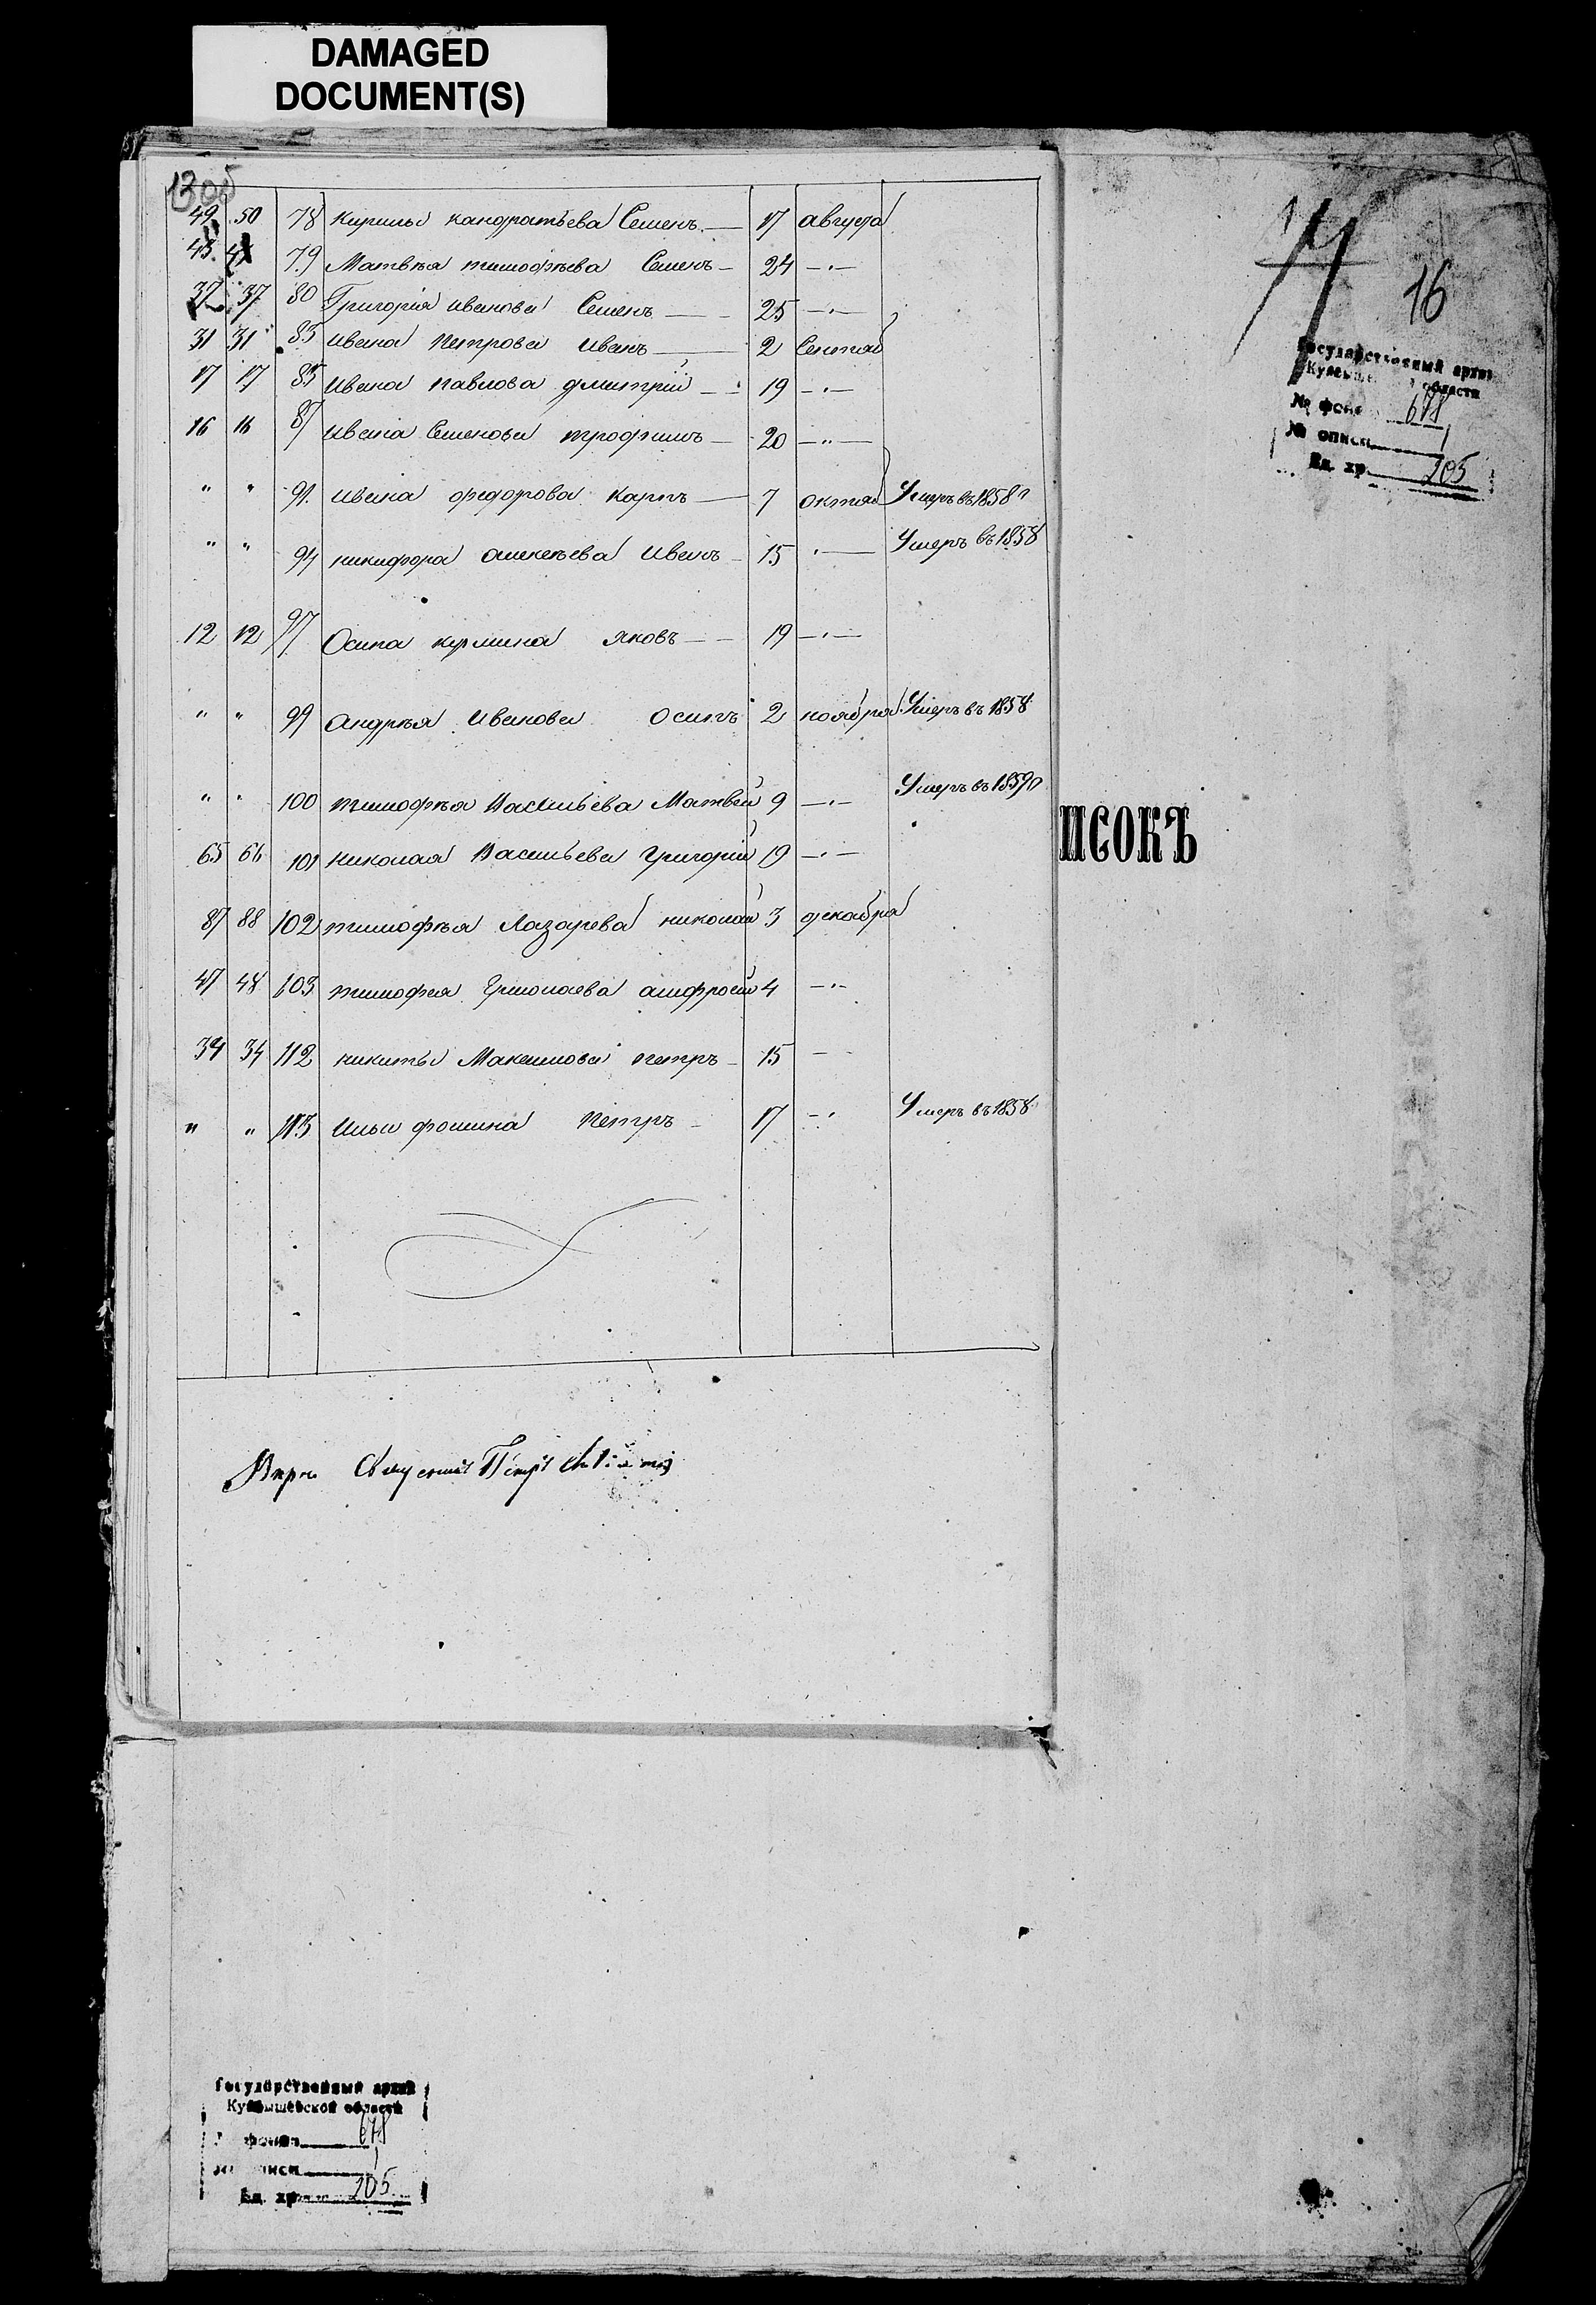 DAMAGED
DOCUMENT(S)
1300
49 50 78 Кирилы кандратьева Семенъ 17 августа
79 Матвѣя тимофѣева Семенъ 24 —"—
37 37 80 Григорія иванова Семенъ 25 —"—
31 31 83 ивана Петрова иванъ 2 Сентяб
17 17 85 ивана павлова дмитрій 19 —"—
16 16 87 ивана Семенова трофимъ 20 —"—
" " 91 ивана федорова Карпъ 7 октяб Умеръ въ 1858
" " 94 никифора алексѣева иванъ 15 —"— Умеръ въ 1858
12 12 97 Осипа кузмина яковъ 19 —"—
" " 99 андрѣя иванова осипъ 2 ноября Умеръ въ 1858
" " 100 тимофѣя Васильева Матвей 9 —"— Умеръ въ 1859
65 66 101 николая Васильева григорій 19 —"—
87 88 102 тимофѣя Лазарева николай 3 декабря
47 48 103 тимофея Ермолаева амфросій 4 —"—
34 34 112 никиты Максимова петръ 15 —"—
" " 113 ильи фомина Петръ 17 —"— Умеръ въ 1858
Петръ
16
Государственный архив
Куйбышевской области
№ фонд 678
№ описи 1
Ед. хр. 205
ИСОКЪ
Государственный архив
Куйбышевской области
фонд 678
описи 1
Ед. хр. 205